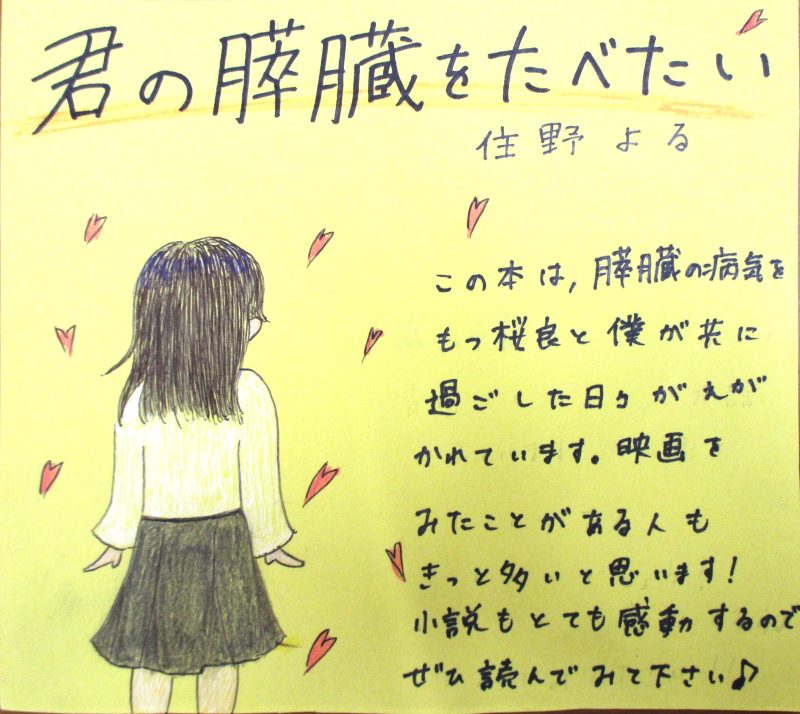 君の膵臓をたべたい
住野よる
この本は,膵臓の病気を
もつ桜良と僕が共に
過ごした日々がえが
かれています。映画を
みたことがある人も
きっと多いと思います!
小説もとても感動するので
ぜひ読んでみて下さい♪